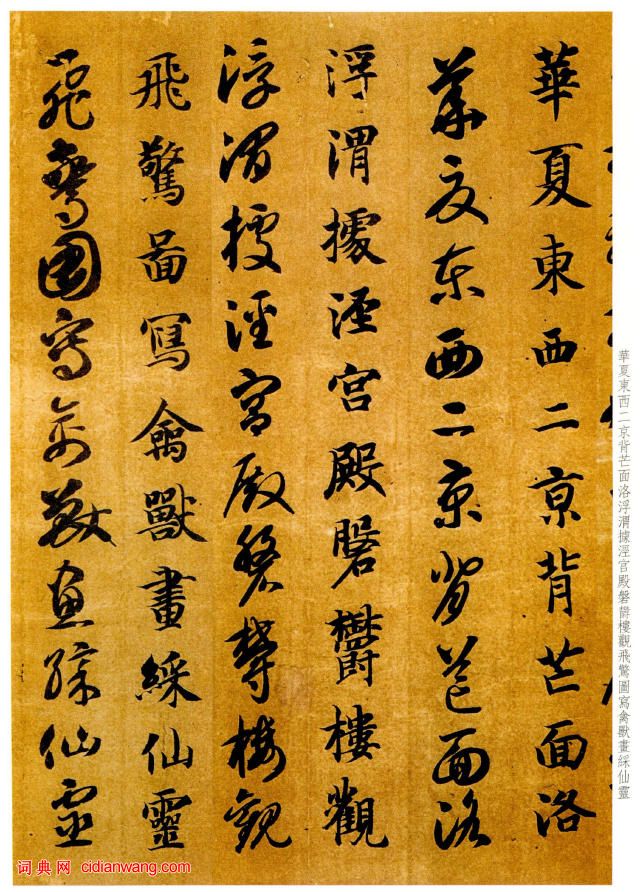 華夏東西二京背芒面洛浮渭據涇宮殿磐鬱樓觀飛驚圖寫禽獸畫綵仙靈
華夏東西二亰背芒面洛
華夏东西二京背芒面洛
浮渭據涇宮殿磐鬱樓觀
浮渭據涇宮殿磐鬱樓觀
飛驚啚寫禽獸畫綵仙靈
飛驚圖寫禽獸畫綵仙靈
词典网 cidianwang.com